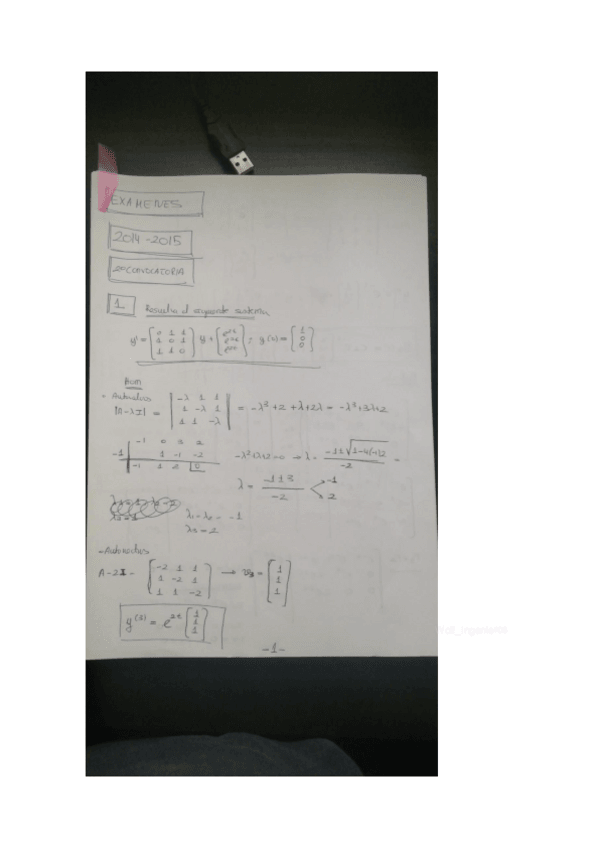 EXAMENES
2014-2015
2ª CONVOCATORIA
1 Resuelva el siguiente sistema
y' = [0 1 1; 1 0 1; 1 1 0] y + ; y(0) = [1; 0; 0]
Hom
- Autovalores
|A-λI| = |-λ 1 1; 1 -λ 1; 1 1 -λ| = -λ³+2+λ+2λ = -λ³+3λ+2
-1 0 3 2
-1 | 1 -1 -2
-1 1 2 |0
-λ²+λ+2=0 → λ = (-1±√(1-4(-1)2))/-2 =
λ = (-1±3)/-2 < -1
2
λ₁=λ₂= -1
λ₃=2
- Autovectores
A-2I = [-2 1 1; 1 -2 1; 1 1 -2] → v₃ = [1; 1; 1]
y⁽³⁾ = e²ᵗ [1; 1; 1]
-1-